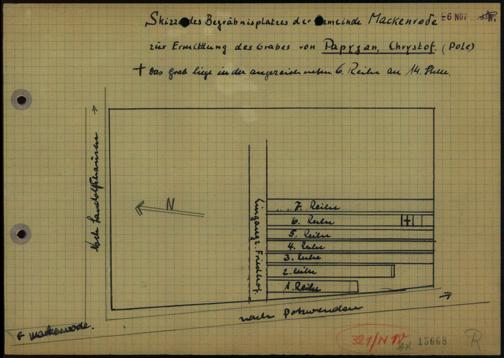 Skizze des Begräbnisplatzes der Gemeinde Mackenrode
zur Ermittlung des Grabes von Paprzan, Chrystof. (Pole)
+ Das Grab liegt in der angezeichneten 6. Reihe an 14. Stelle.
Nach Landolfshausen
N
Eingang z. Friedhof
7. Reihe
6. Reihe
5. Reihe
4. Reihe
3. Reihe
2. Reihe
1. Reihe
nach Potzwenden
Mackenrode.
15668